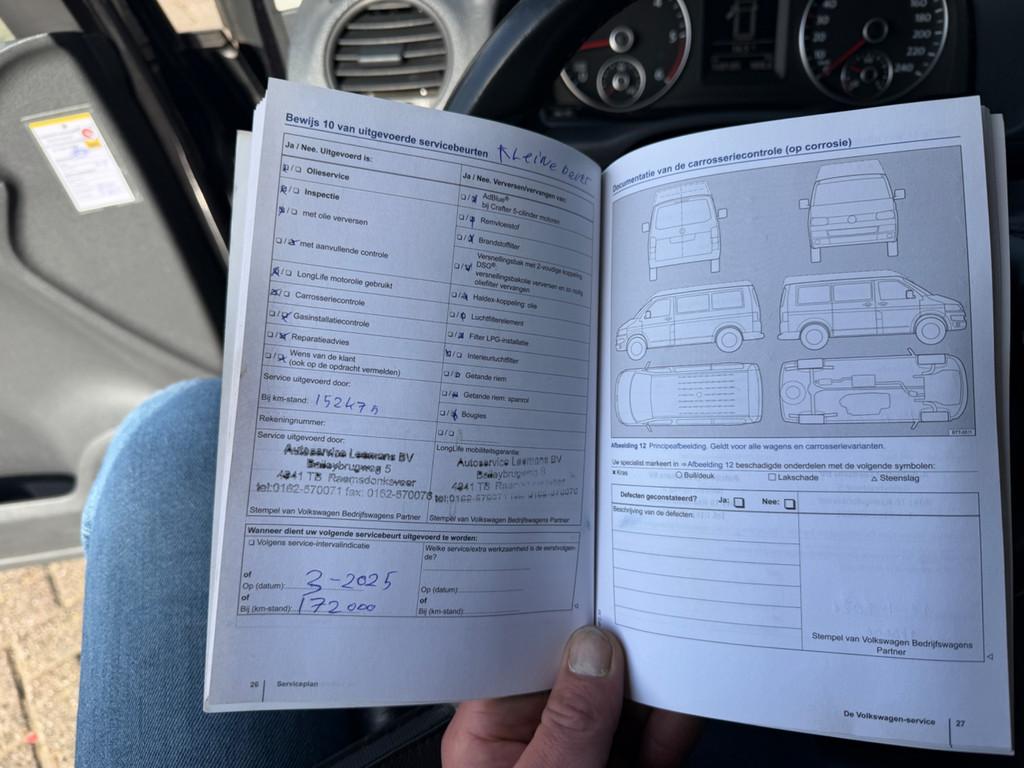 Bewijs 10 van uitgevoerde servicebeurten Kleine beurt
Ja / Nee. Uitgevoerd is:
Olieservice
Inspectie
met olie verversen
met aanvullende controle
LongLife motorolie gebruikt
Carrosseriecontrole
Gasinstallatiecontrole
Reparatieadvies
Wens van de klant
(ook op de opdracht vermelden)
Service uitgevoerd door:
Bij km-stand:
Rekeningnummer:
Service uitgevoerd door:
Autoservice Leemans BV
5
4941 TB Raamsdonksveer
tel:0162-570071 fax: 0162-570076
Stempel van Volkswagen Bedrijfswagens Partner
Ja / Nee. Verversen/vervangen van:
AdBlue®
bij Crafter 5-cilinder motoren
Remvloeistof
Brandstoffilter
Versnellingsbak met 2-voudige koppeling
DSG®:
versnellingsbakolie verversen en zo nodig
oliefilter vervangen
Haldex-koppeling: olie
Luchtfilterelement
Filter LPG-installatie
Interieurluchtfilter
Getande riem
Getande riem: spanrol
Bougies
LongLife mobiliteitsgarantie
Autoservice Leemans BV
4941 TB
tel:0162-570071 fax: 0162-570076
Stempel van Volkswagen Bedrijfswagens Partner
Wanneer dient uw volgende servicebeurt uitgevoerd te worden:
Volgens service-intervalindicatie
of
Op (datum): 3-2025
of
Bij (km-stand): 172000
Welke service/extra werkzaamheid is de eerstvolgen-
de?
Op (datum):
of
Bij (km-stand):
26 Serviceplan
Documentatie van de carrosseriecontrole (op corrosie)
Afbeelding 12 Principeafbeelding. Geldt voor alle wagens en carrosserievarianten.
Uw specialist markeert in ⇒Afbeelding 12 beschadigde onderdelen met de volgende symbolen:
x Kras ○ Buil/deuk □ Lakschade △ Steenslag
Defecten geconstateerd? Ja: Nee:
Beschrijving van de defecten:
Stempel van Volkswagen Bedrijfswagens
Partner
De Volkswagen-service 27